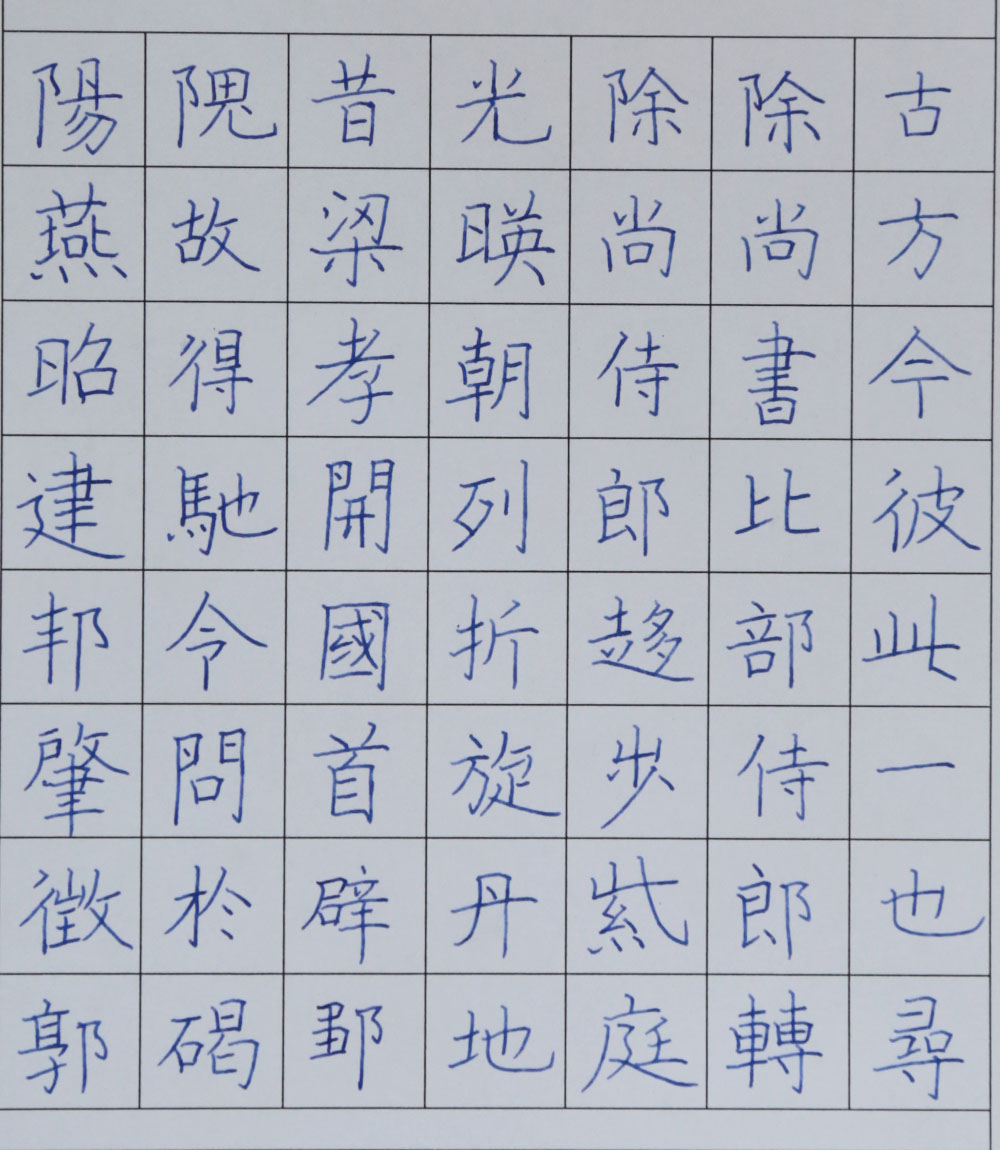 古方今彼此一也尋
除尚書比部侍郎轉
除尚侍郎趍步紫庭
光暎朝列折旋丹地
昔梁孝開國首辟鄒
隗故得馳令問於碣
陽燕昭建邦肇徵郭